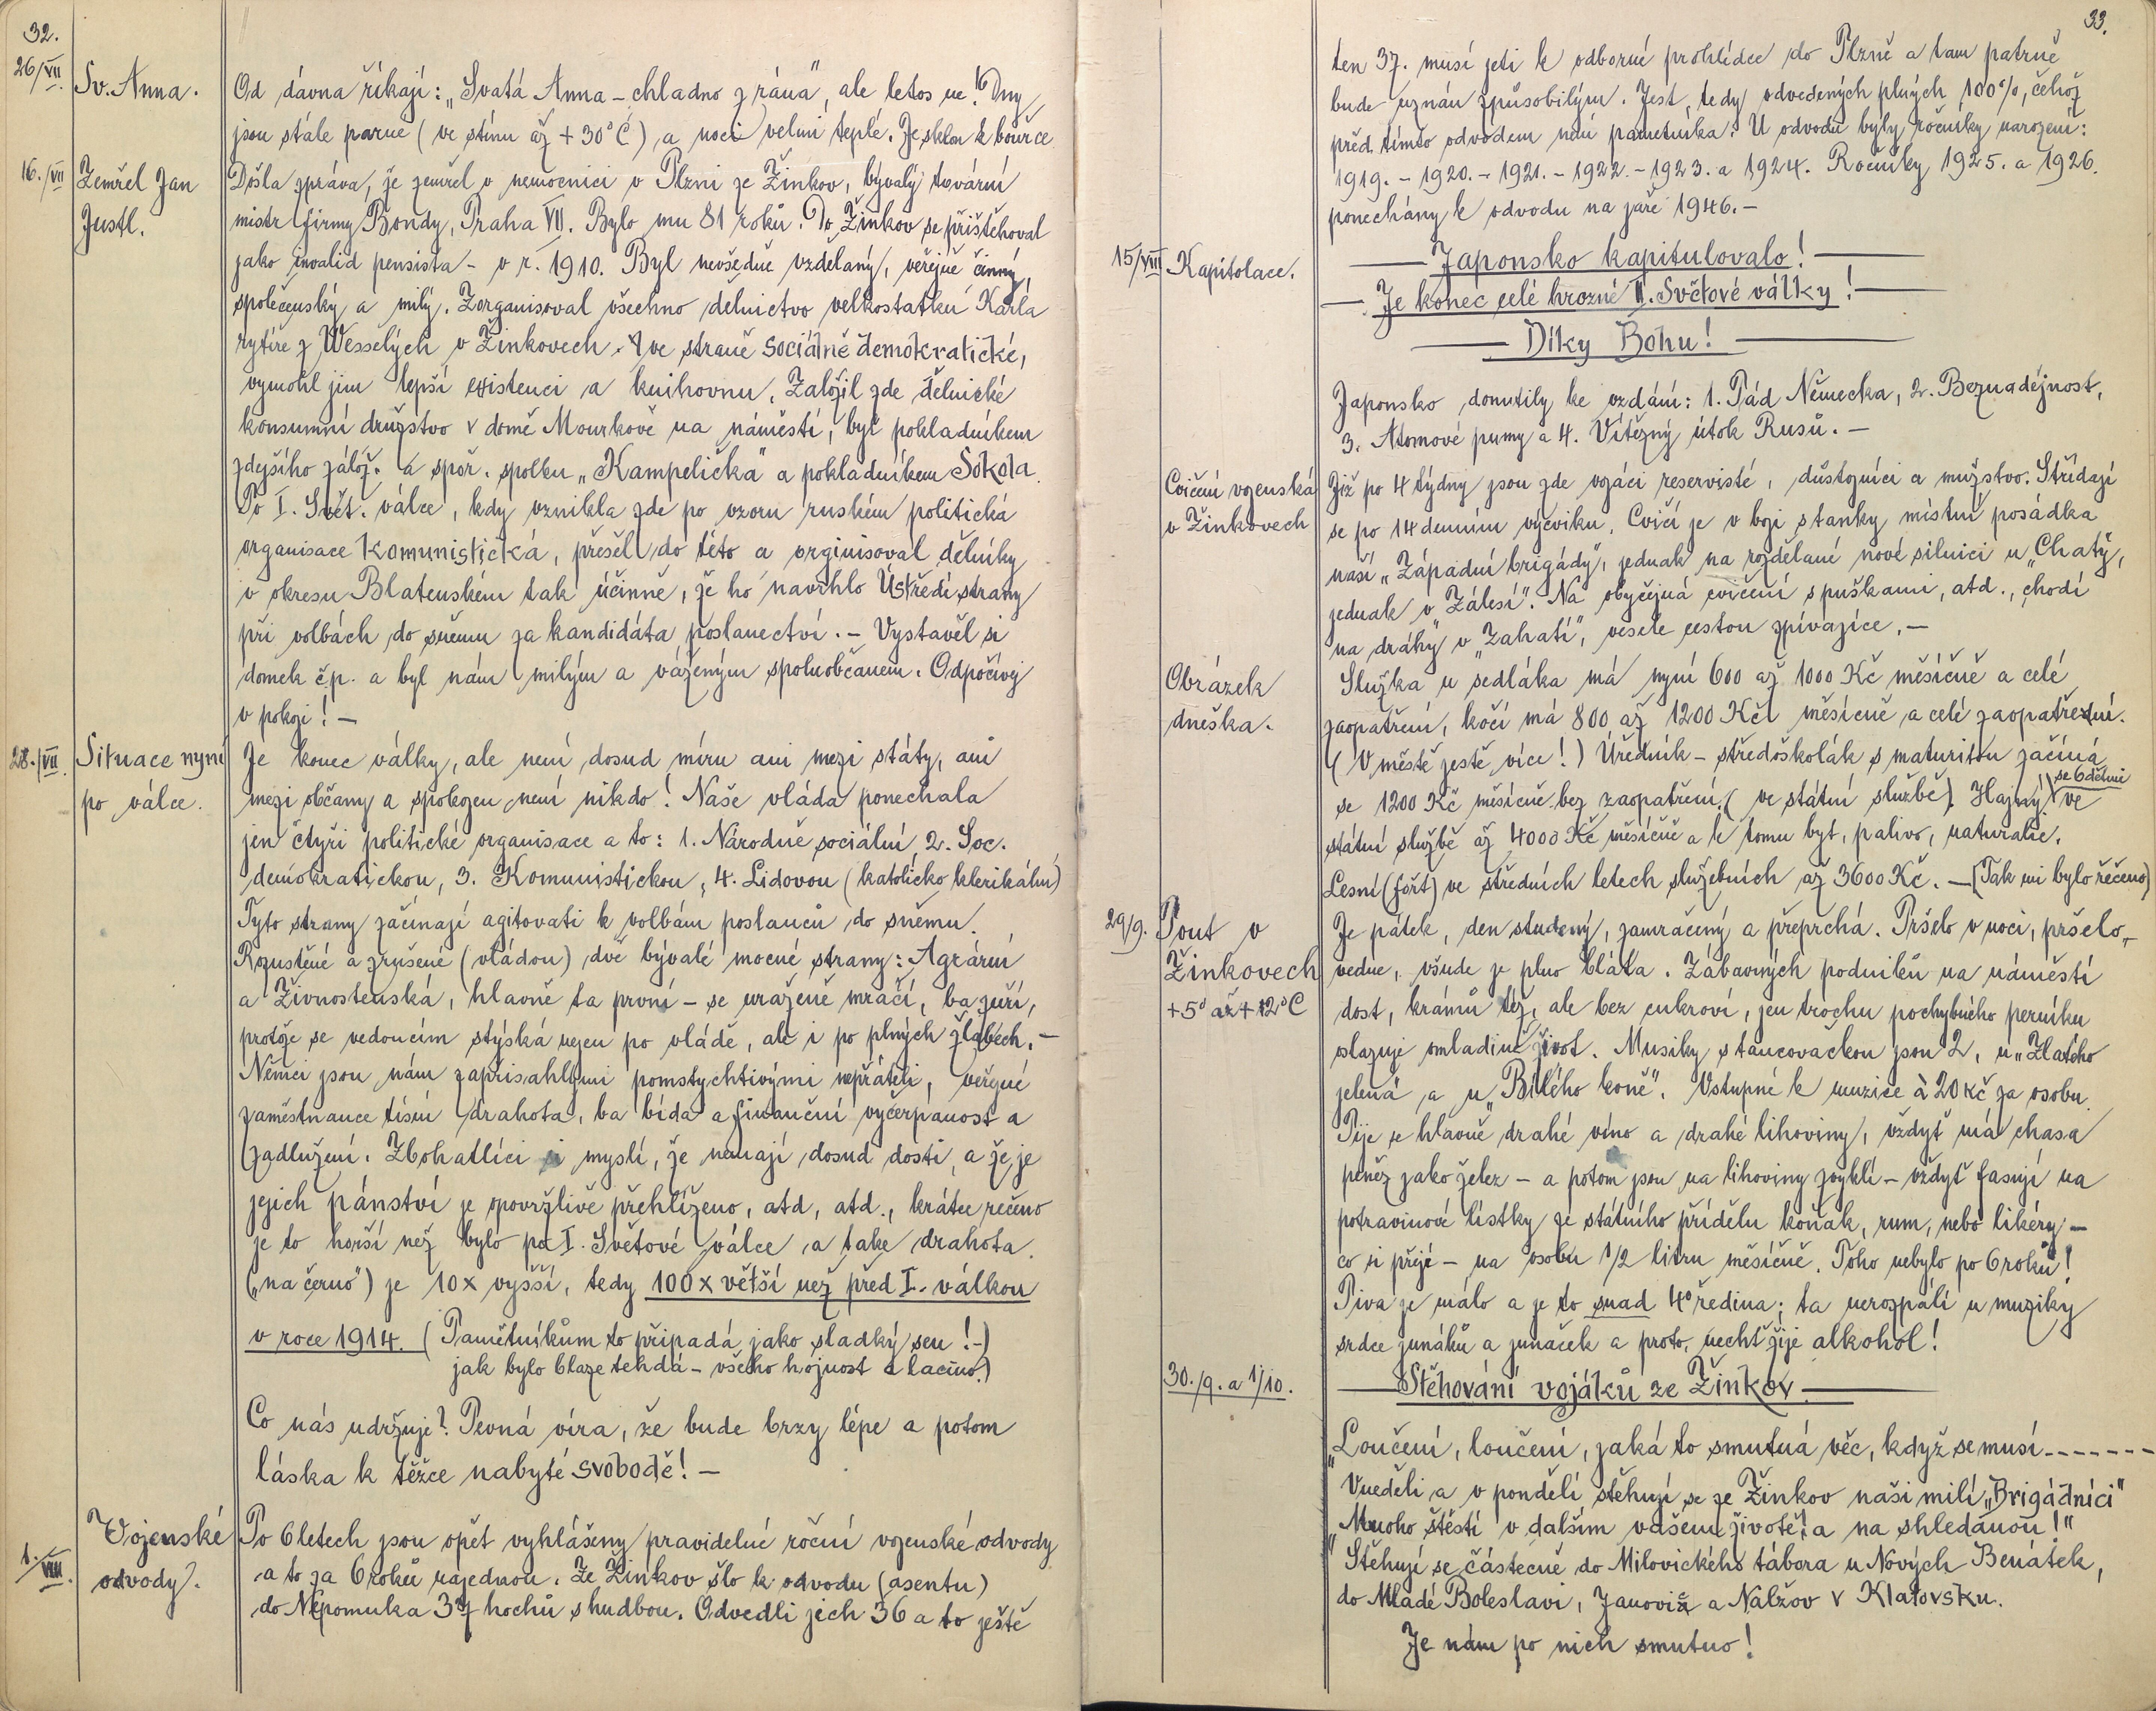 32.
26/VII.
Sv. Anna.
Od dávna říkají: „Svatá Anna – chladno z rána", ale letos ne! Dny
jsou stále parné (ve stínu až + 30° C), a noci velmi teplé. Je sklon k bouřce
16./VII
Zemřel Jan
Justl.
Došla zpráva, že zemřel v nemocnici v Plzni ze Žinkov, bývalý tovární
mistr firmy Bondy, Praha VII. Bylo mu 81 roků. Do Žinkov se přistěhoval
jako invalid pensista – v r. 1910. Byl nevšedně vzdělaný, veřejně činný,
společenský a milý. Zorganisoval všechno dělnictvo velkostatků Karla
rytíře z Wesselých v Žinkovech ve straně Sociálně demokratické,
vymohl jim lepší existenci a knihovnu. Založil zde dělnické
konsumní družstvo v domě Mourkově na náměstí, byl pokladníkem
zdejšího zálož. a spoř. spolku „Kampelička" a pokladníkem Sokola.
Po I. Svět. válce, kdy vznikla zde po vzoru ruském politická
organisace Komunistická, přešel do této a orginisoval dělníky
v okresu Blatenském tak účinně, že ho navrhlo Ústředí strany
při volbách do sněmu za kandidáta poslanectví. – Vystavěl si
domek čp. a byl nám milým a váženým spoluobčanem. Odpočívej
v pokoji! –
28./VII.
Situace nyní
po válce.
Je konec války, ale není dosud míru ani mezi státy, ani
mezi občany a spokojen není nikdo! Naše vláda ponechala
jen čtyři politické organisace a to: 1. Národně sociální, 2. Soc.
demokratickou, 3. Komunistickou, 4. Lidovou (katolicko klerikální)
Tyto strany začínají agitovati k volbám poslanců do sněmu.
Rozpuštěné a zrušené (vládou) dvě bývalé mocné strany: Agrární
a Živnostenská, hlavně ta první – se uraženě mračí, ba zuří,
protože se vedoucím stýská nejen po vládě, ale i po plných žlabech. –
Němci jsou nám zapřisahlými pomstychtivými nepřáteli, veřejné
zaměstnance tísní drahota, ba bída a finanční vyčerpanost a
zadlužení. Zbohatlíci si myslí, že nemají dosud dosti, a že je
jejich pánství je opovržlivě přehlíženo, atd, atd., krátce řečeno
je to horší než bylo po I. Světové válce a take drahota
(„na černo") je 10x vyšší, tedy 100x větší než před I. válkou
v roce 1914. (Pamětníkům to připadá jako sladký sen! –)
jak bylo blaze tehdá – všeho hojnost a lacino.)
Co nás udržuje? Pevná víra, že bude brzy lépe a potom
láska k těžce nabyté svobodě! –
1./VIII.
Vojenské
odvody.
Po 6 letech jsou opět vyhlášeny pravidelné roční vojenské odvody
a to za 6 roků najednou. Ze Žinkov šlo k odvodu (asentu)
do Nepomuka 37 hochů s hudbou. Odvedli jich 36 a to ještě
33.
ten 37. musí jeti k odborné prohlídce do Plzně a tam patrně
bude uznán způsobilým. Jest tedy odvedených plných 100%, čehož
před tímto odvodem není pametníka. U odvodu byly ročníky narození:
1919. – 1920. – 1921. – 1922. – 1923. a 1924. Ročníky 1925. a 1926.
ponechány k odvodu na jaře 1946. –
15/VIII
Kapitolace.
Japonsko kapitulovalo!
Je konec celé hrozné II. Světové války!
Díky Bohu!
Japonsko donutily ke vzdání: 1. Pád Německa, 2. Beznadějnost,
3. Atomové pumy a 4. Vítězný útok Rusů. –
Cvičení vojenská
v Žinkovech
Již po 4 týdny jsou zde vojáci reservisté, důstojníci a mužstvo. Střídají
se po 14 denním výcviku. Cvičí je v boji s tanky místní posádka
naší „Západní brigády", jednak na rozdělané nové silnici u „Chatý,
jednak v „Zálesí". Na obyčejná cvičení s puškami, atd., chodí
na dráhy v „Zahatí", vesele cestou zpívajíce. –
Obrázek
dneška.
Služka u sedláka má nyní 600 až 1000 Kč měsíčně a celé
zaopatření, kočí má 800 až 1200 Kč měsíčně a celé zaopatření.
(V městě ještě více!) Úředník – středoškolák s maturitou začíná
se 1200 Kč měsíčně bez zaopatření (ve státní službě). Hajný se 6 dětmi ve
státní službě až 4000 Kč měsíčně a k tomu byt, palivo, naturalie.
Lesní (fořt) ve středních letech služebních až 3600 Kč. – (Tak mi bylo řečeno)
29/9.
Pout v
Žinkovech
+5° až + 12° C
Je pátek, den studený, zamračený a přeprchá. Pršelo v noci, pršelo
vedne, všude je plno bláta. Zábavných podniků na náměstí
dost, krámů též, ale bez cukroví, jen trochu pochybného perníku
slazuje omladině život. Musiky s tancovačkou jsou 2, u „Zlatého
jelena" a u „Bílého koně". Vstupné k muzice à 20 Kč za osobu.
Pije se hlavně drahé víno a drahé lihoviny, vždyť má chasa
peněz jako želez – a potom jsou na lihoviny zvyklí – vždyť fasují na
potravinové lístky ze státního přídělu koňak, rum, nebo likéry –
co si přejí – na osobu 1/2 litru měsíčně. Toho nebylo po 6 roků!
Piva je málo a je to snad 4° ředina; ta nerozpálí u muziky
srdce junáků a junaček a proto, nechť žije alkohol!
30./9. a 1/10.
Stěhování vojáků ze Žinkov
„Loučení, loučení, jaká to smutná věc, když se musí - - - - - - -
V neděli a v pondělí stěhují se ze Žinkov naši milí „Brigádníci"
„Mnoho štěstí v dalším vašem životě! a na shledanou!"
Stěhují se částečně do Milovického tábora u Nových Benátek,
do Mladé Boleslavi, Janovic a Nalžov v Klatovsku.
Je nám po nich smutno!